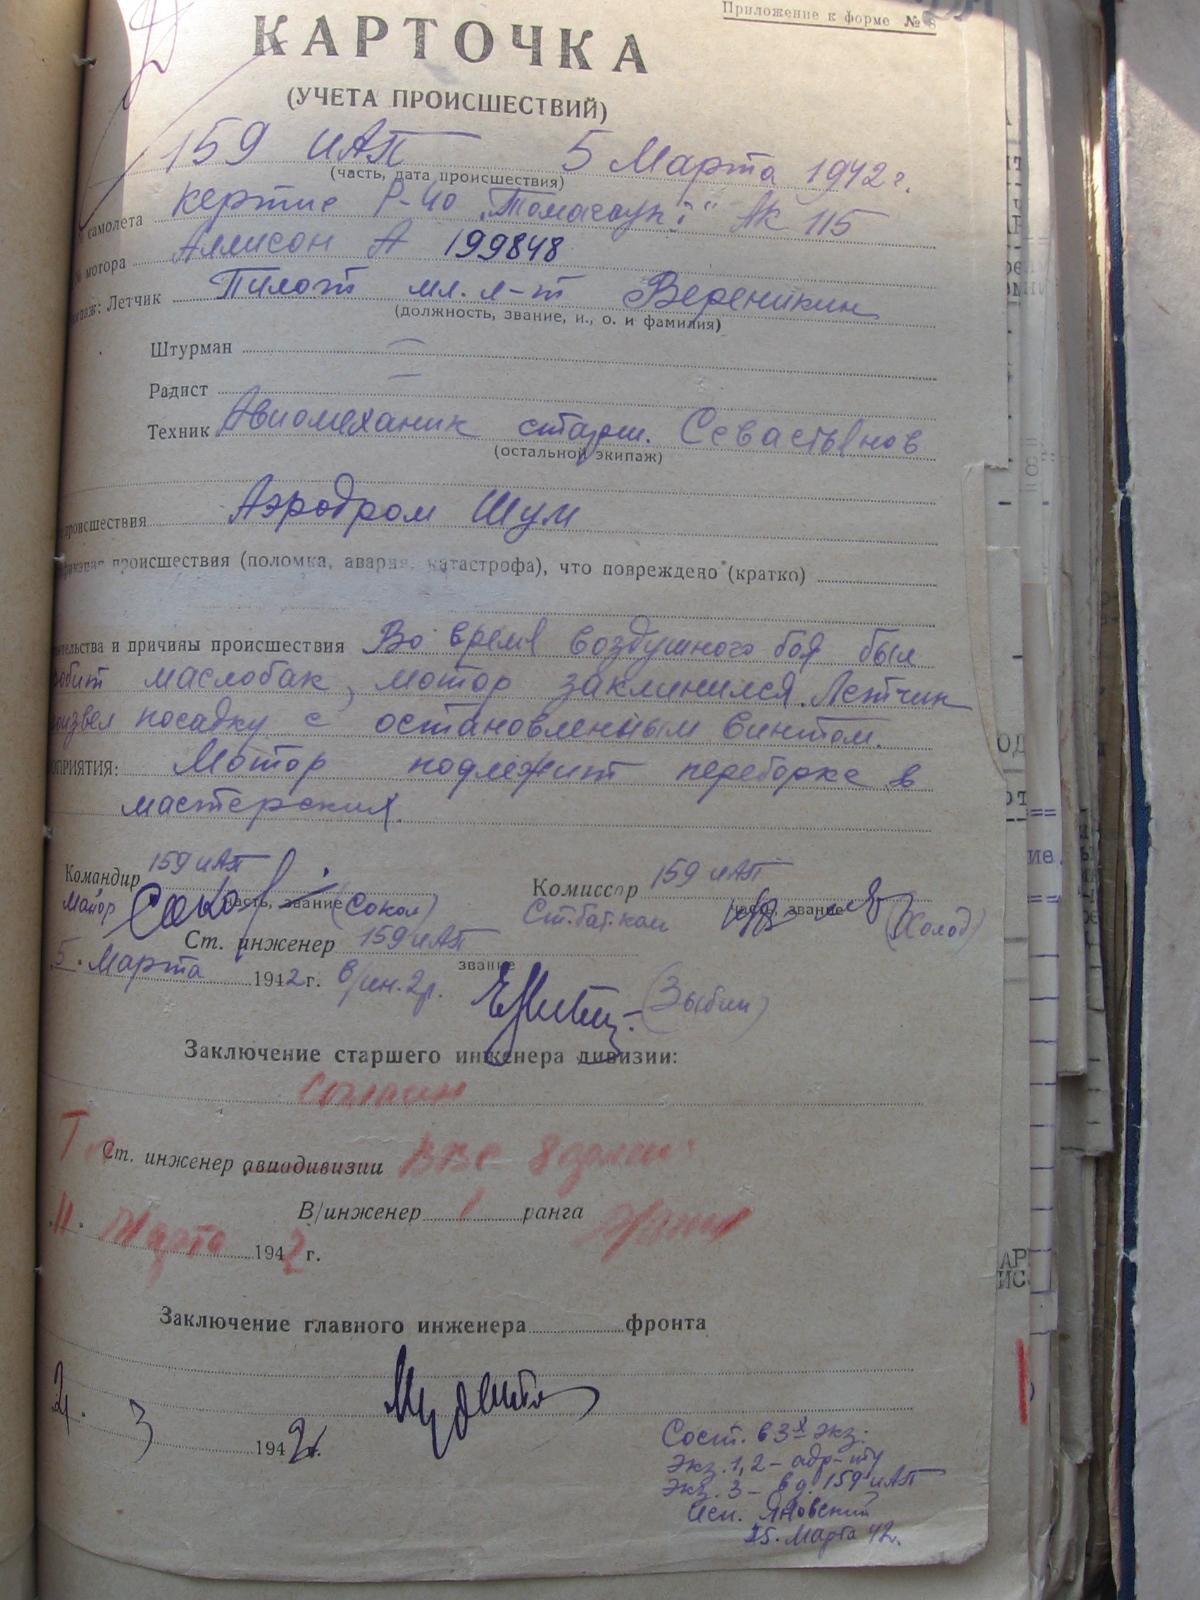 Приложение к форме № 8
КАРТОЧКА
(УЧЕТА ПРОИСШЕСТВИЙ)
159 ИАП 5 Марта 1942 г.
(часть, дата происшествия)
самолета Кертис Р-40 „Томагаук" АК 115
мотора Аллисон А 199848
Летчик Пилот мл. л-т Вереникин
(должность, звание, и., о. и фамилия)
Штурман —
Радист —
Техник Авиомеханик старш. Севастьянов
(остальной экипаж)
происшествия Аэродром Шум
происшествия (поломка, авария, катастрофа), что повреждено (кратко)
тельства и причины происшествия Во время воздушного боя был
обит маслобак, мотор заклинился. Летчик
оизвел посадку с остановленным винтом.
ОПРИЯТИЯ: Мотор подлежит переборке в
мастерских.
Командир 159 ИАП Комиссар 159 ИАП
часть, звание часть, звание
Майор (Сокол) Ст. бат. ком (Холод)
Ст. инженер 159 ИАП
звание
5. Марта 1942 г. в/ин. 2 р. (Зыбин)
Заключение старшего инженера дивизии:
Согласен
Ст. инженер авиодивизии ВВС 8
В/инженер 1 ранга
11. Марта 1942 г.
Заключение главного инженера фронта
21. 3 1942 г.
Сост. в 3х экз:
Экз. 1, 2 – адр-ту
Экз. 3 – в д. 159 ИАП
Исп. Яновский
5. Марта 42.